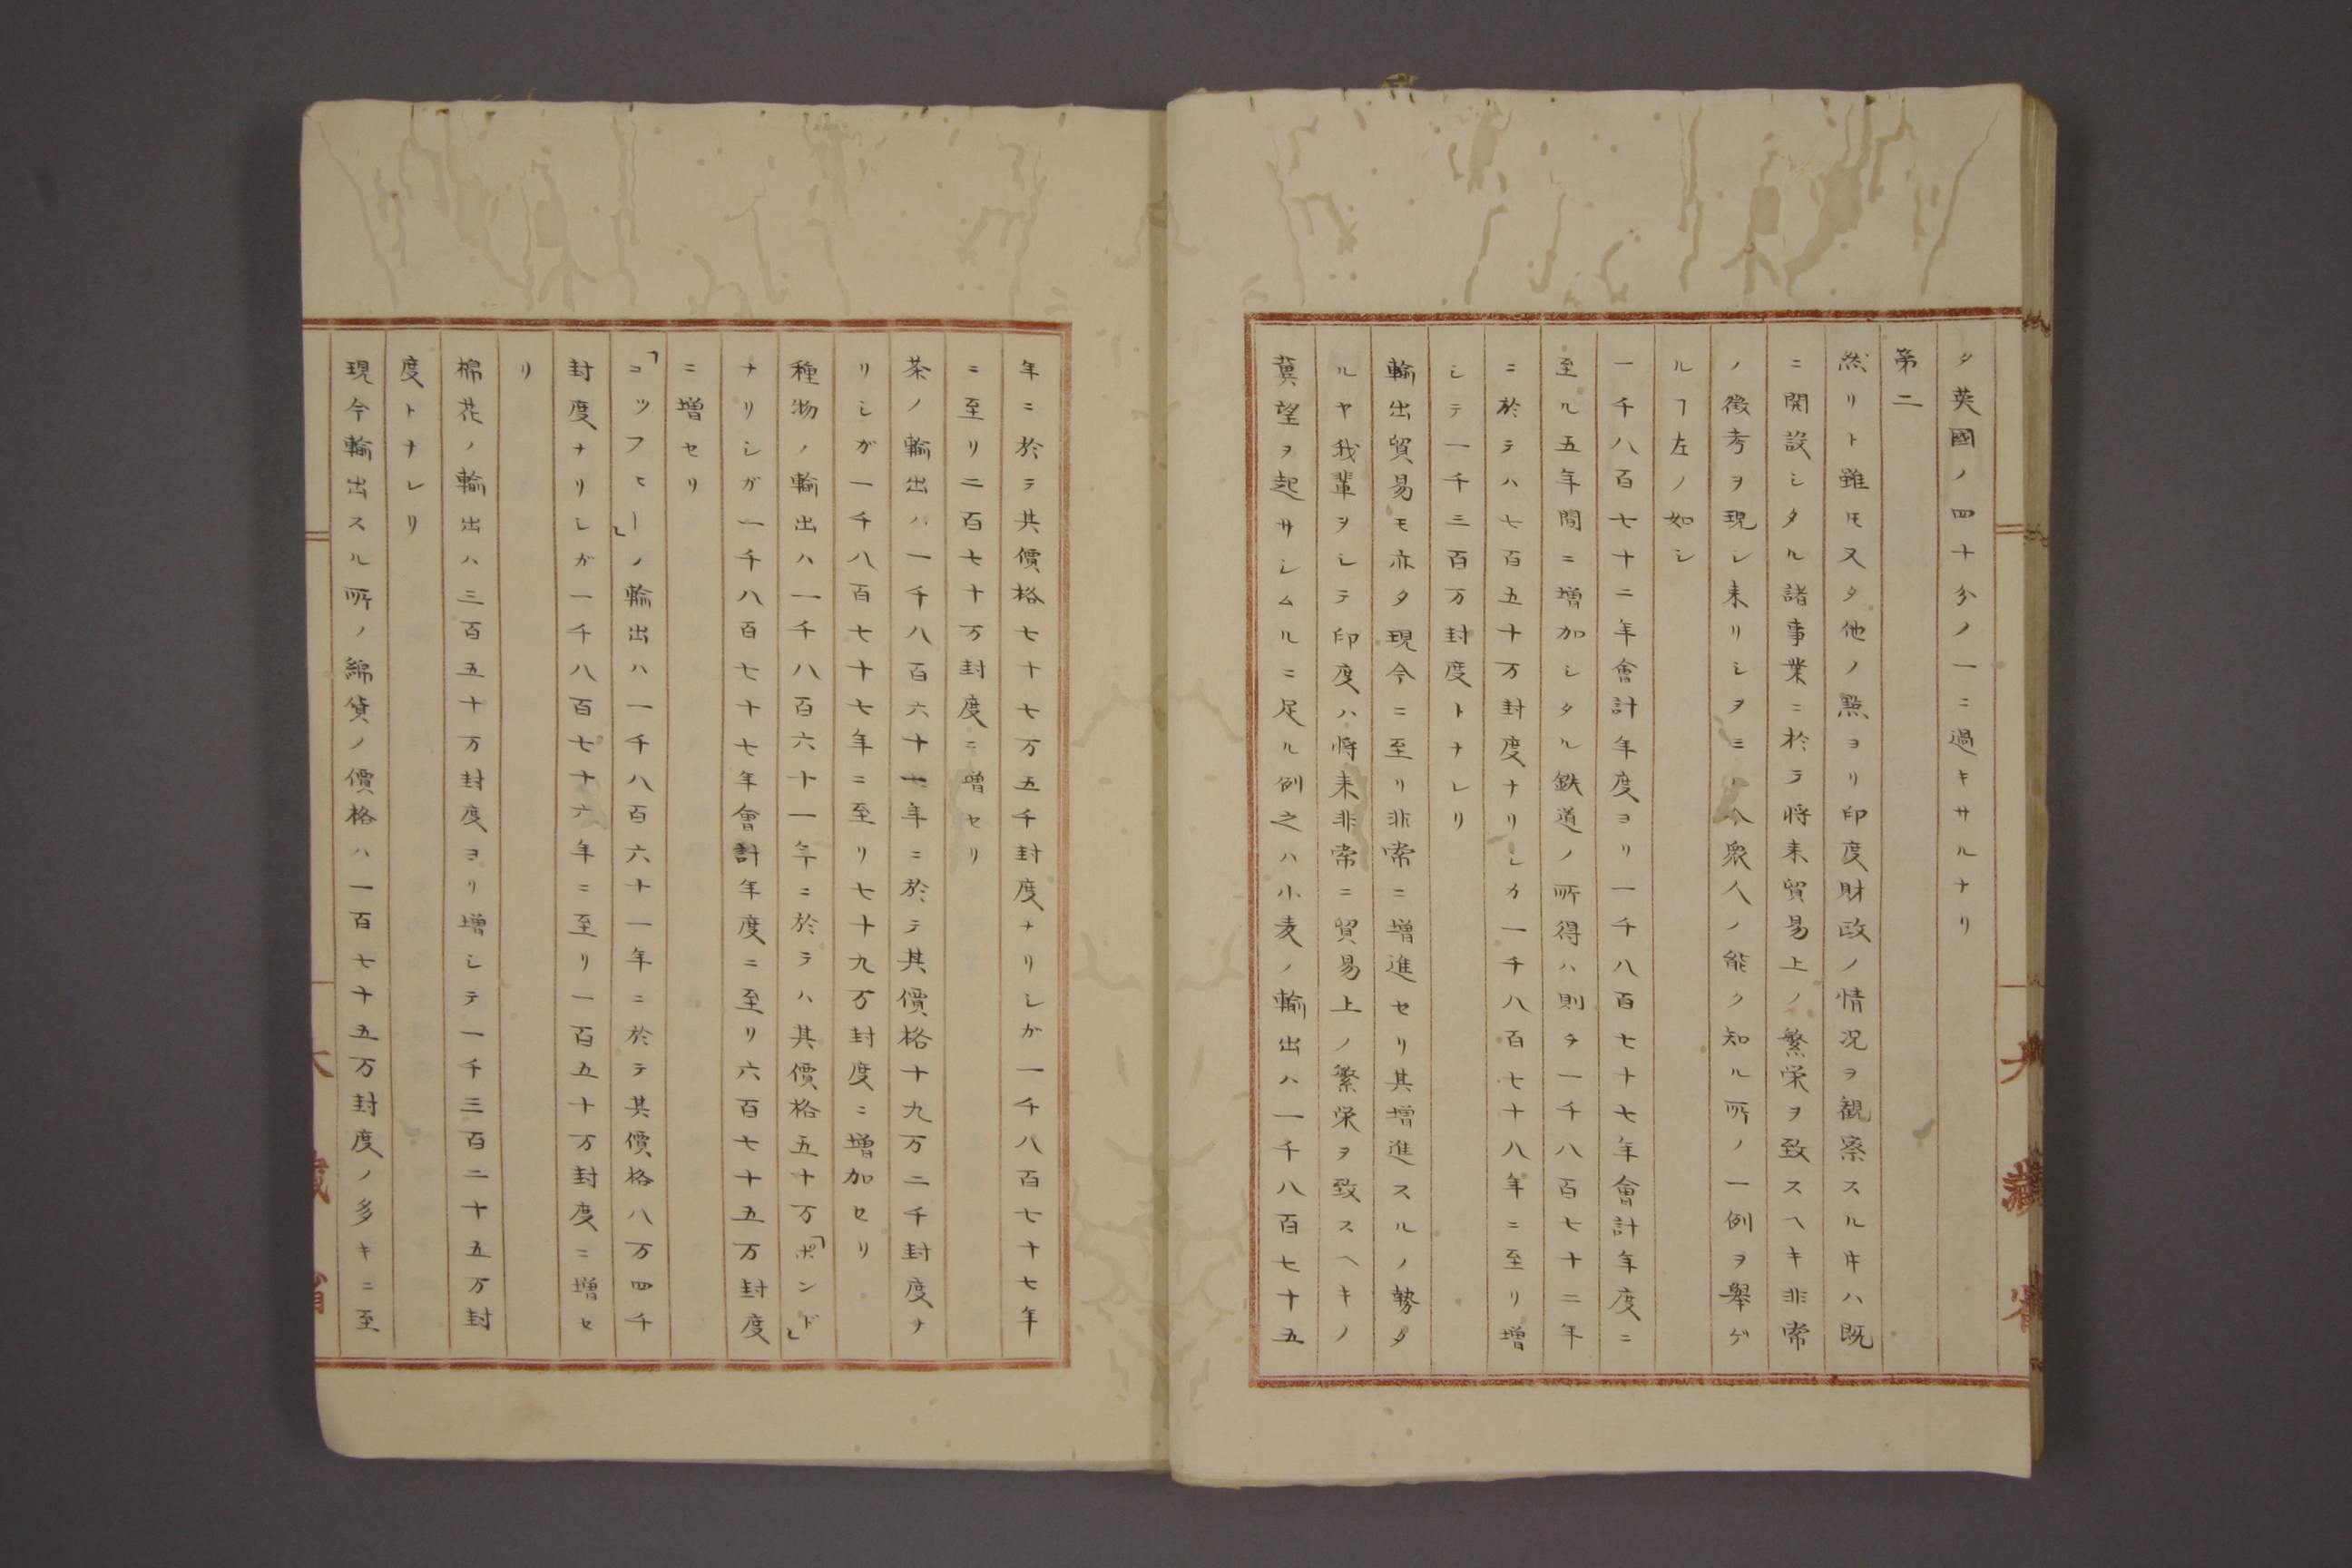 タ英國ノ四十分ノ一ニ過キサルナリ
第二
然リト雖モ又タ他ノ㸃ヨリ印度財政ノ情况ヲ観察スルキハ既
ニ開設シタル諸事業ニ於テ將来貿易上ノ繁栄ヲ致スヘキ非常
ノ徴考ヲ現シ来リシヲミ今衆人ノ能ク知ル所ノ一例ヲ舉ゲ
ルヿ左ノ如シ
一千八百七十二年會計年度ヨリ一千八百七十七年會計年度ニ
至ル五年間ニ増加シタル鉄道ノ所得ハ則チ一千八百七十二年
ニ於テハ七百五十万封度ナリシカ一千八百七十八年ニ至リ増
シテ一千三百万封度トナレリ
輸出貿易モ亦タ現今ニ至リ非常ニ増進セリ其増進スルノ勢タ
ルヤ我輩ヲシテ印度ハ將来非常ニ貿易上ノ繁栄ヲ致スヘキノ
冀望ヲ起サシムルニ足ル例之ハ小麦ノ輸出ハ一千八百七十五
年ニ於テ其價格七十七万五千封度ナリシが一千八百七十七年
ニ至リ二百七十万封度ニ増セリ
茶ノ輸出ハ一千八百六十一年ニ於テ其價格十九万二千封度ナ
リシガ一千八百七十七年ニ至リ七十九万封度ニ増加セリ
種物ノ輸出ハ一千八百六十一年ニ於テハ其價格五十万「ポンド」
ナリシガ一千八百七十七年會計年度ニ至リ六百七十五万封度
ニ増セリ
「コツフヒー」ノ輸出ハ一千八百六十一年ニ於テ其價格八万四千
封度ナリシガ一千八百七十六年ニ至リ一百五十万封度ニ増セ
リ
棉花ノ輸出ハ三百五十万封度ヨリ増シテ一千三百二十五万封
度トナレリ
現今輸出スル所ノ綿貨ノ價格ハ一百七十五万封度ノ多キニ至